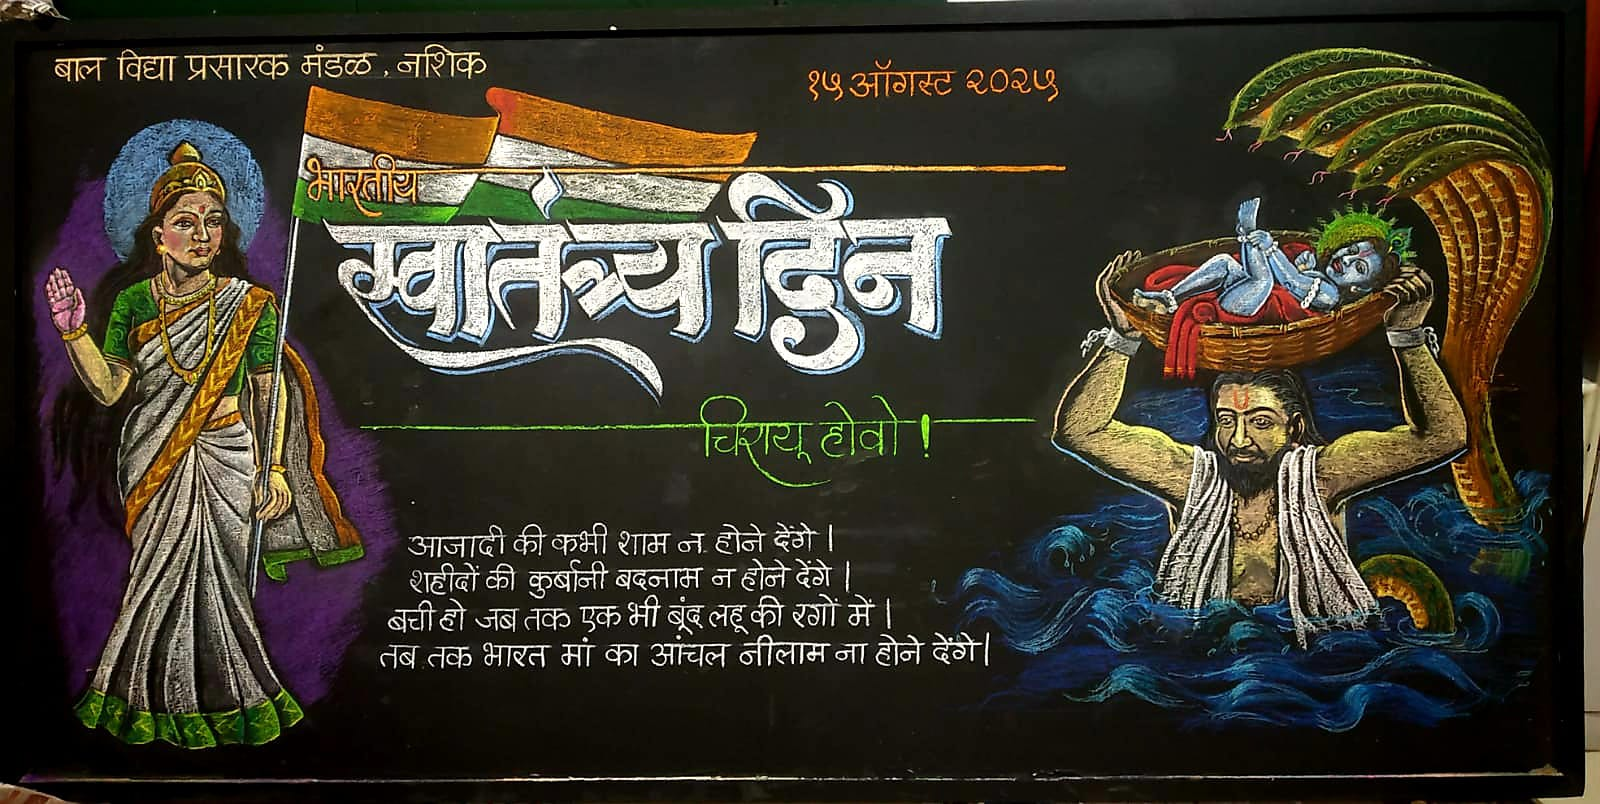 बाल विद्या प्रसारक मंडळ, नशिक
१५ ऑगस्ट २०२५
भारतीय
स्वातंत्र्य दिन
चिरायू होवो!
आजादी की कभी शाम न होने देंगे।
शहीदों की कुर्बानी बदनाम न होने देंगे।
बची हो जब तक एक भी बूंद लहू की रगों में।
तब तक भारत मां का आंचल नीलाम ना होने देंगे।